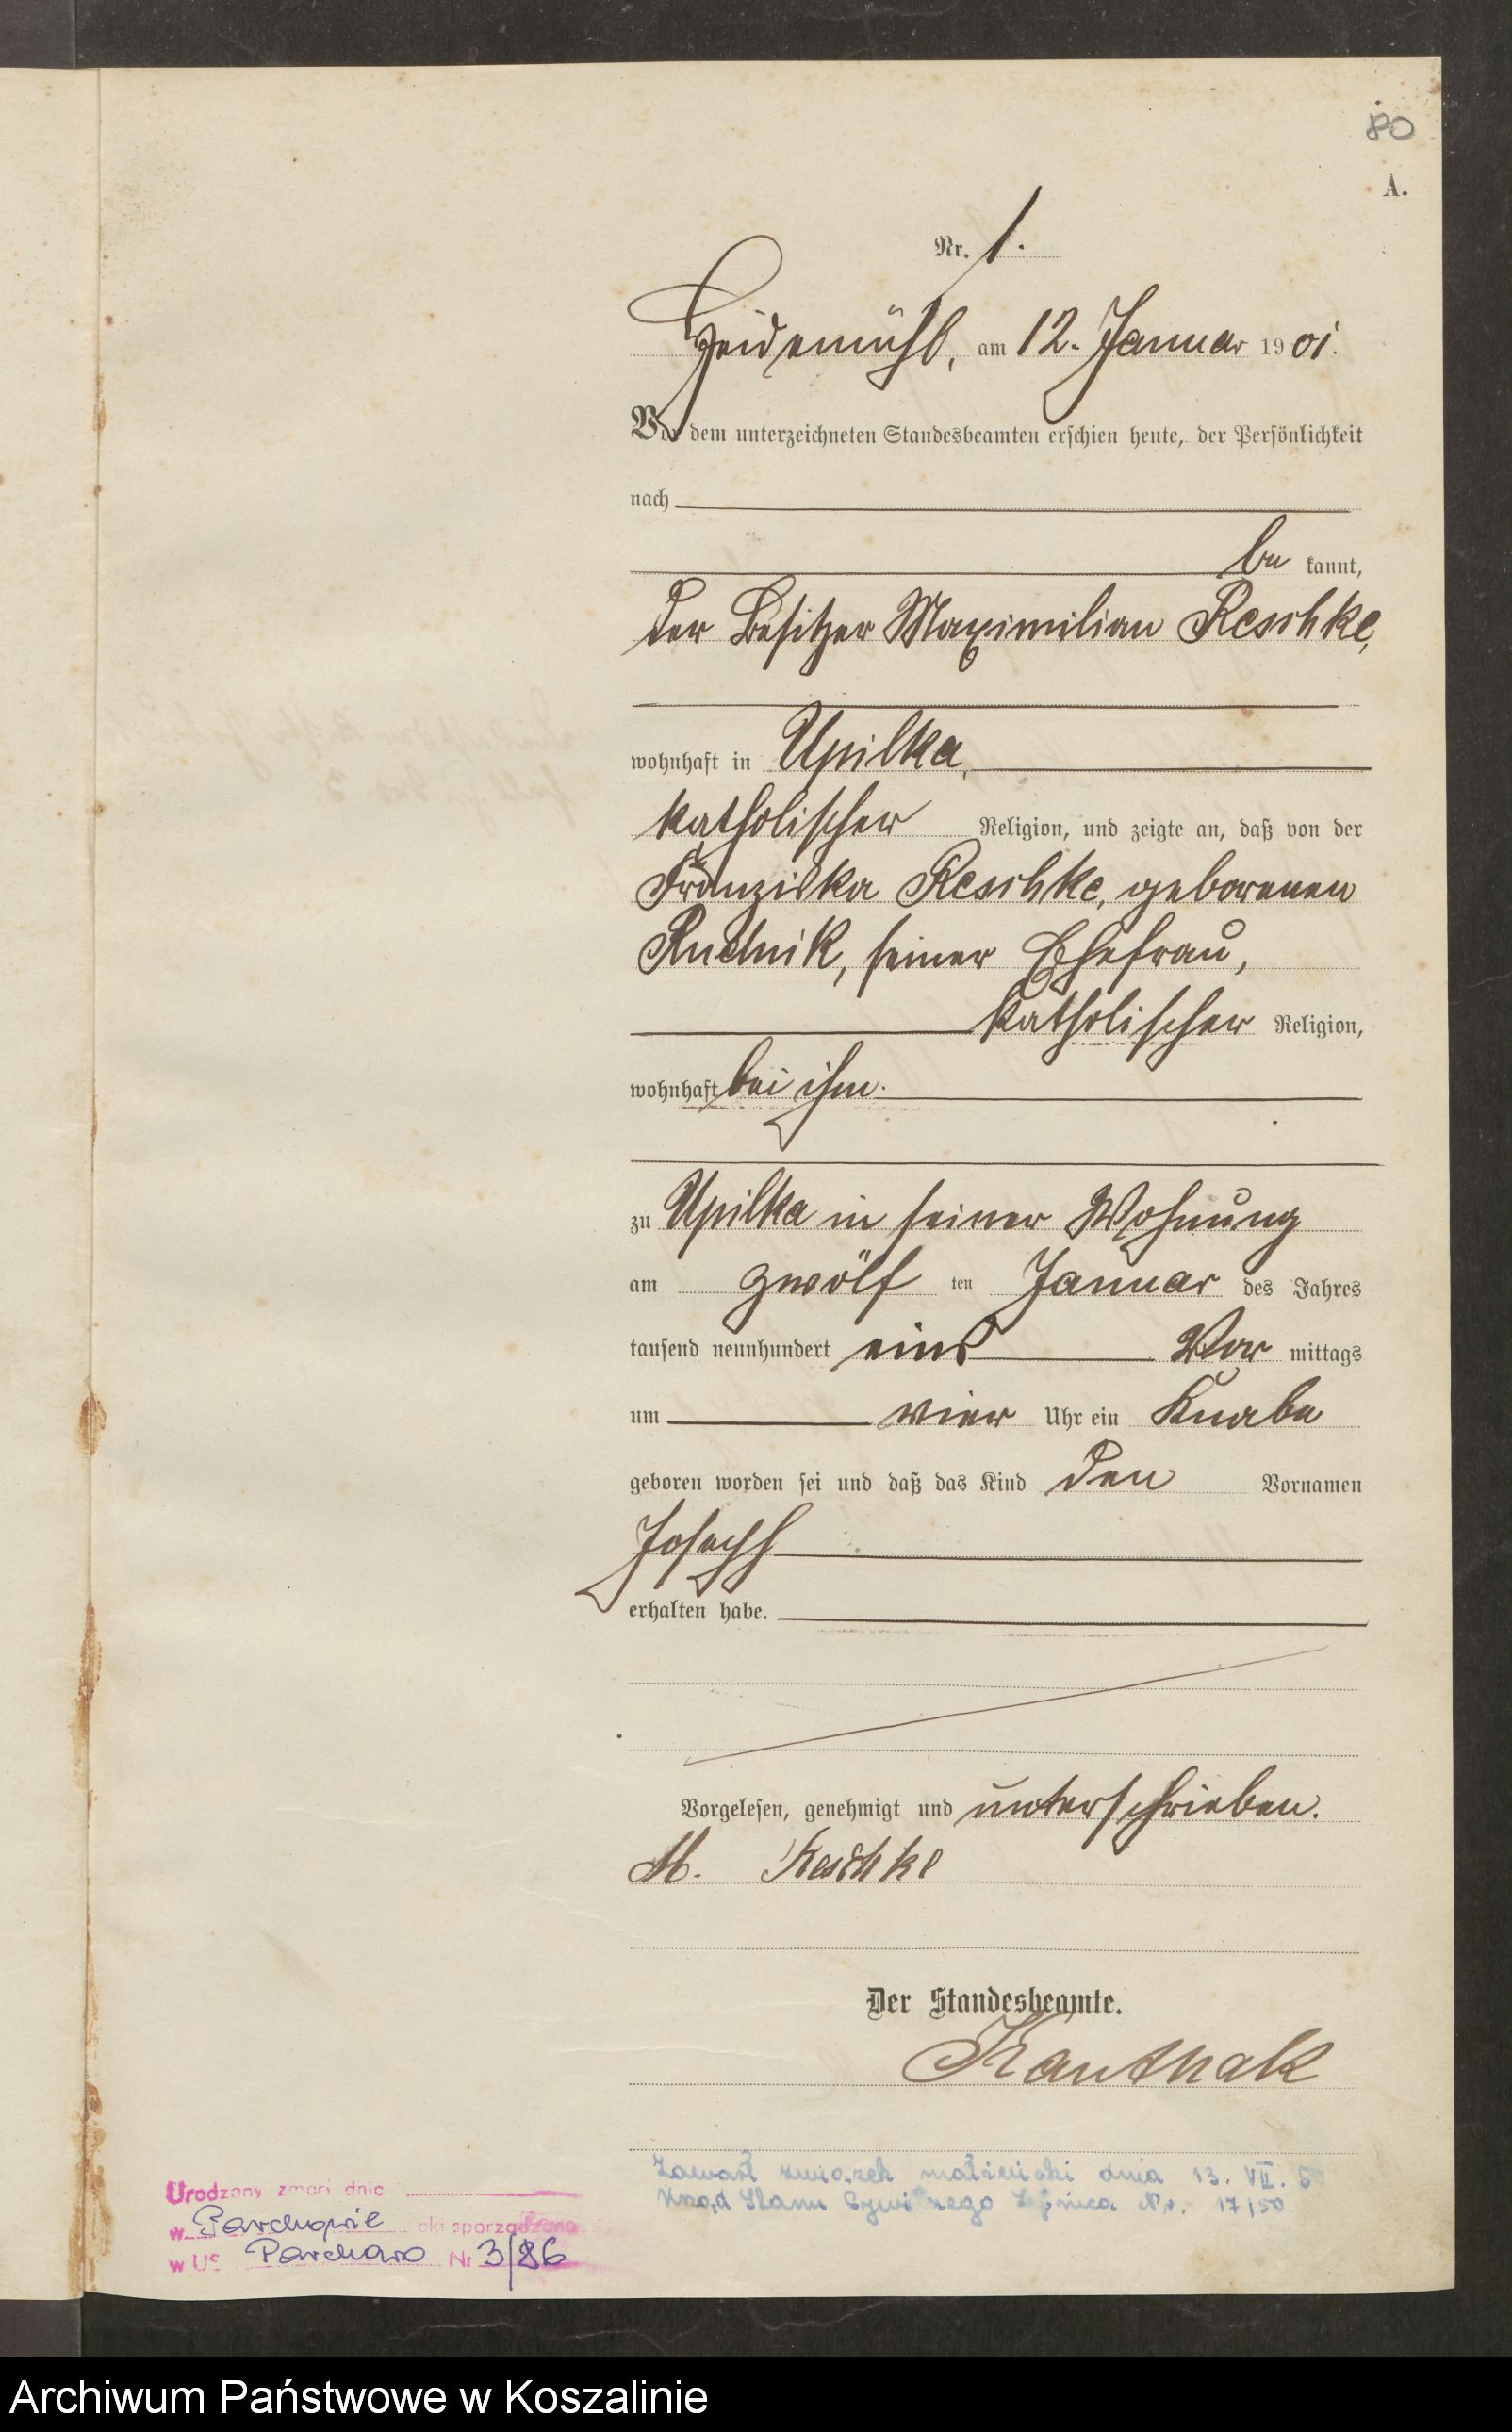 80
A.
Nr. 1.
Heidemühl, am 12. Januar 1901.
Vor dem unterzeichneten Standesbeamten erschien heute, der Persönlichkeit
nach
be kannt,
der Besitzer Maximilian Reschke,
wohnhaft in Upilka,
katholischer Religion, und zeigte an, daß von der
Franziska Reschke, geborenen
Rudnik, seiner Ehefrau,
katholischer Religion,
wohnhaft bei ihm.
zu Upilka in seiner Wohnung
am zwölf ten Januar des Jahres
tausend neunhundert eins Vor mittags
um vier Uhr ein Knabe
geboren worden sei und daß das Kind den Vornamen
Joseph
erhalten habe.
Vorgelesen, genehmigt und unterschrieben.
M. Reschke
Der Standesbeamte.
Kanthak
Zawarł związek małżeński dnia 13. VII. 50
Urząd Stanu Cywilnego Lipnica Nr. 17/50
Urodzony zmarł dnia
w Parchowie akt sporządzono
w US Parchowo Nr 3/86
Archiwum Państwowe w Koszalinie